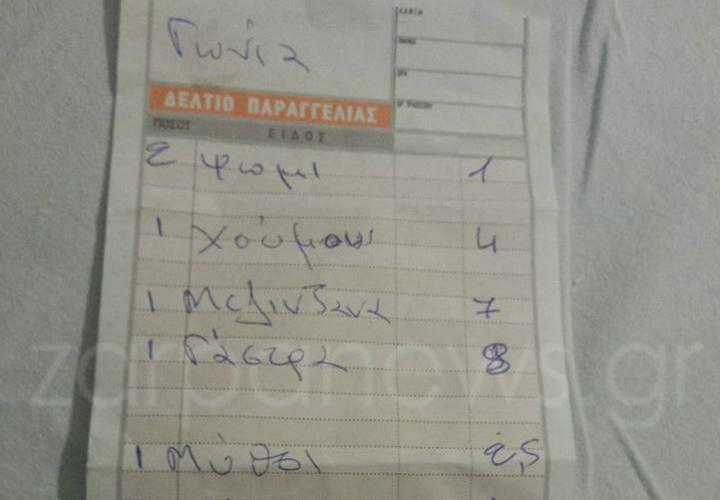 Γωνία
ΔΕΛΤΙΟ ΠΑΡΑΓΓΕΛΙΑΣ
ΠΟΣΟΤ ΕΙΔΟΣ
2 ψωμι 1
1 χούμους 4
1 Μελιντζανα 7
1 Γάστρα 8
1 Μύθοι 2,5
zarpanews.gr